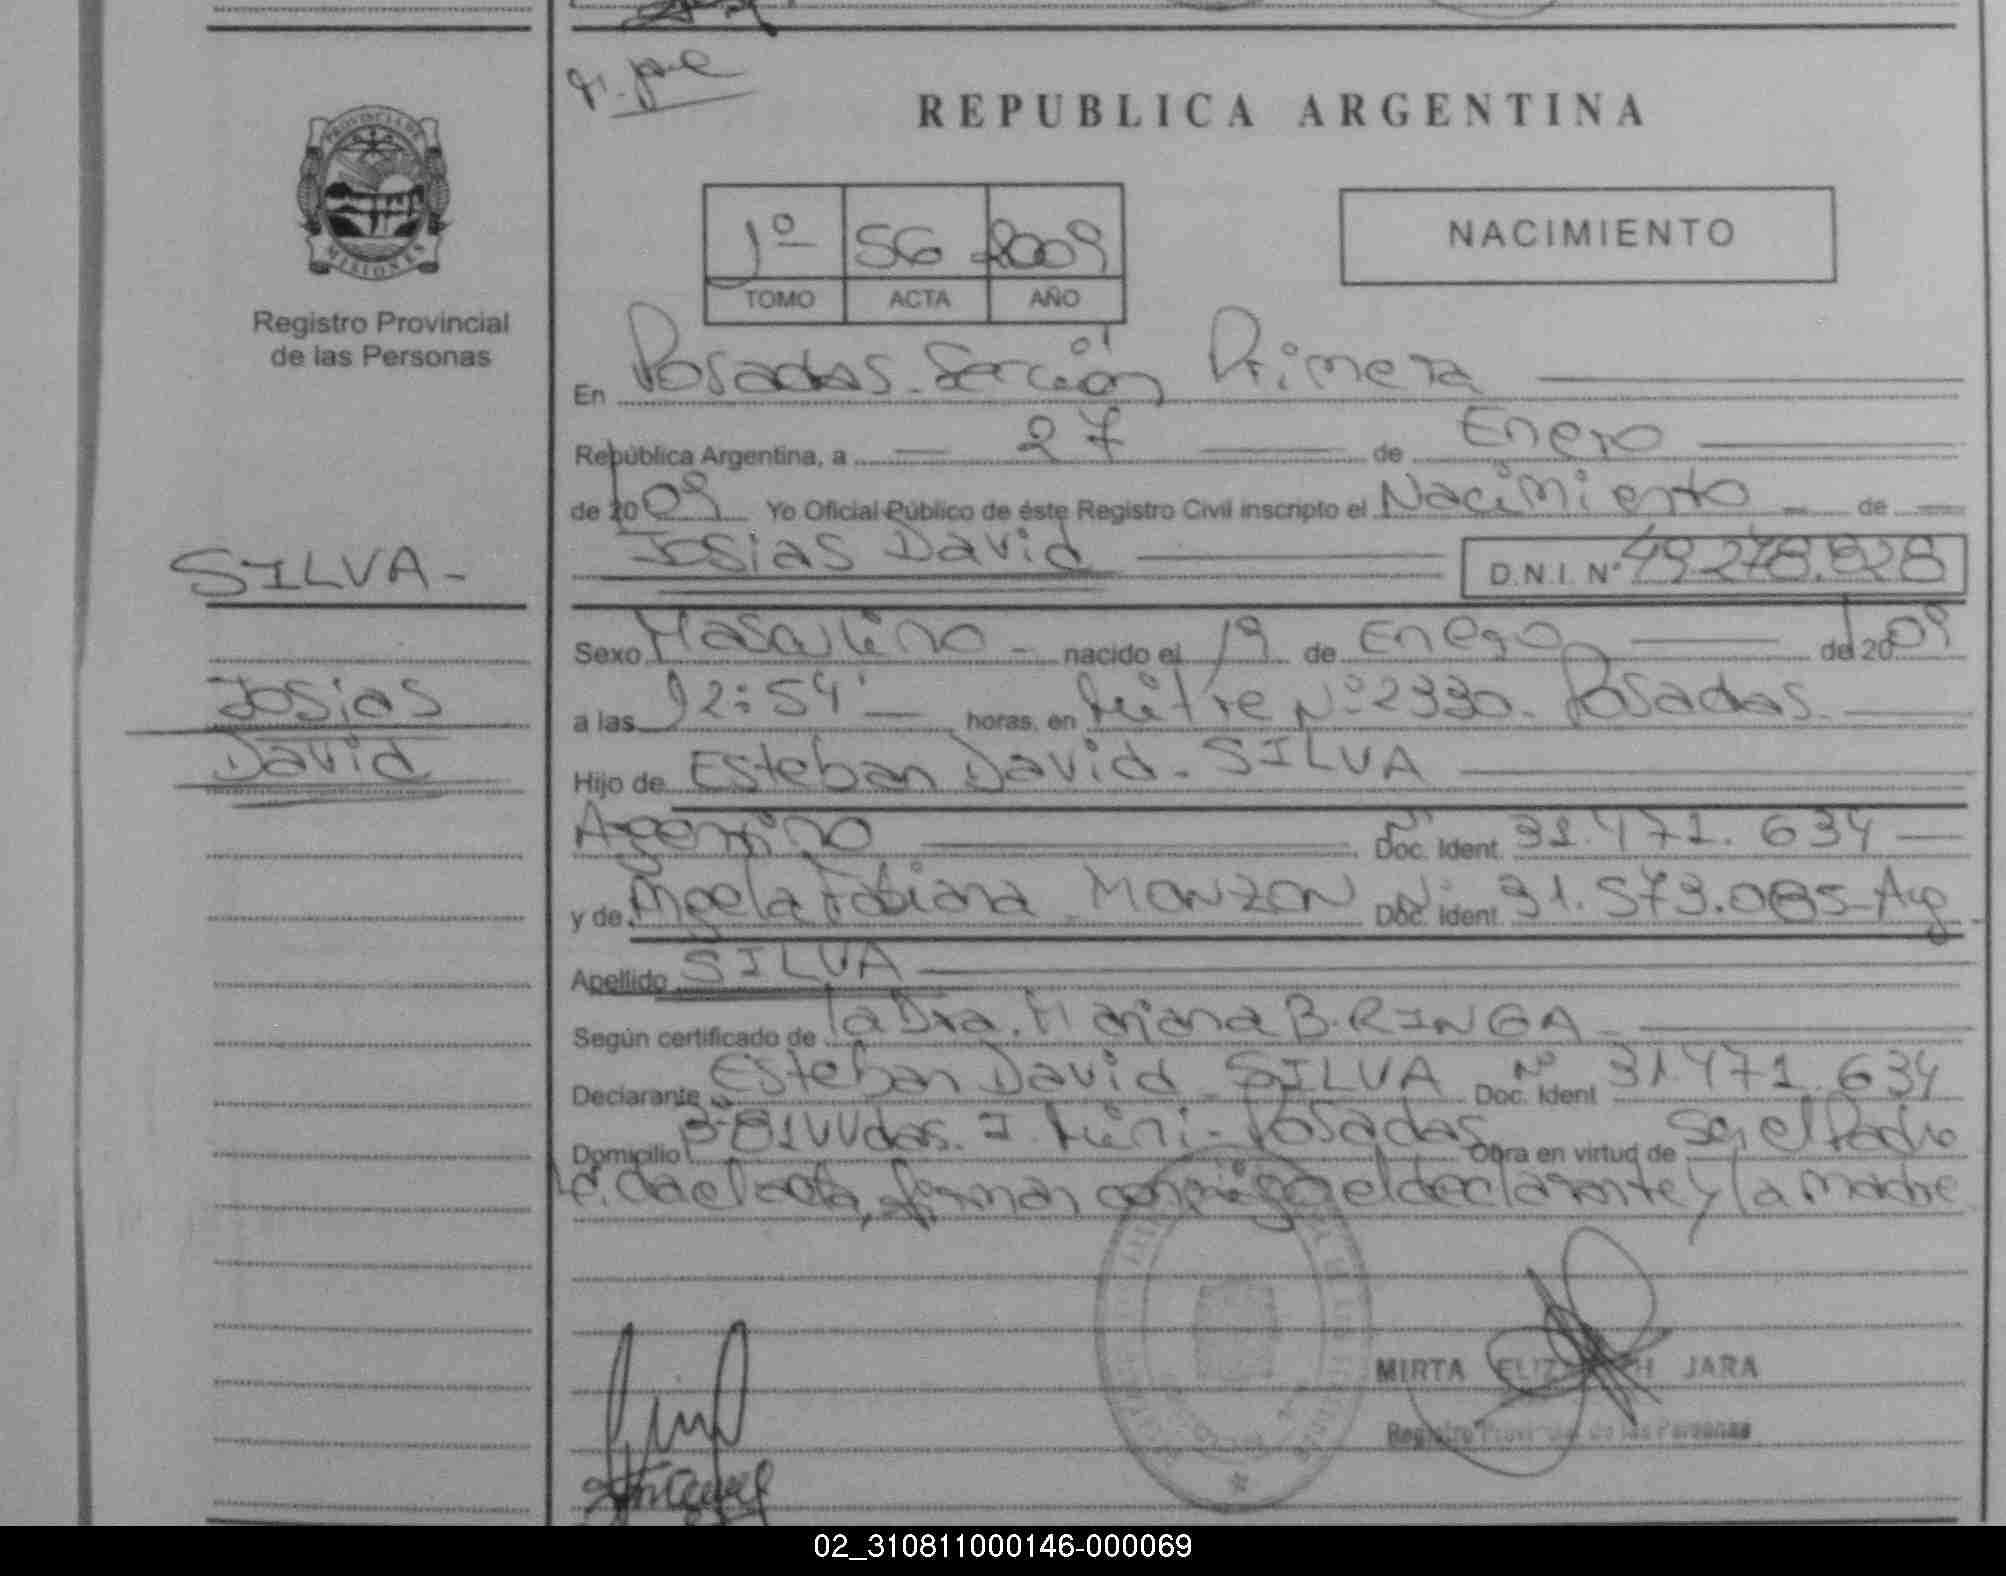 REPUBLICA ARGENTINA
PROVINCIA DE
MISIONES
Registro Provincial
de las Personas
1º 56 2009
TOMO ACTA AÑO
NACIMIENTO
En Posadas. Sección Primera
República Argentina, a 27 de Enero
de 2009 Yo Oficial Público de éste Registro Civil inscripto el Nacimiento de
Josias David D.N.I. Nº 49.278.828
SILVA -
Josias
David
Sexo Masculino - nacido el 19 de Enero de 2009
a las 12:54' horas, en Mitre Nº 2330. Posadas.
Hijo de Esteban David. SILVA
Argentino Nº Doc. Ident. 31.471.634
y de Angela Fabiana MONZON Nº Doc. Ident. 31.573.085-Arg
Apellido SILVA
Según certificado de la Dra. Mariana B. RINGA
Declarante Esteban David SILVA Nº Doc. Ident 31.471.634
Domicilio 181 VVdas. I. Miní - Posadas Obra en virtud de Ser el Padre
Leída el acta, firman conmigo el declarante y la madre
MIRTA ELIZABETH JARA
Registro Provincial de las Personas
02_310811000146-000069